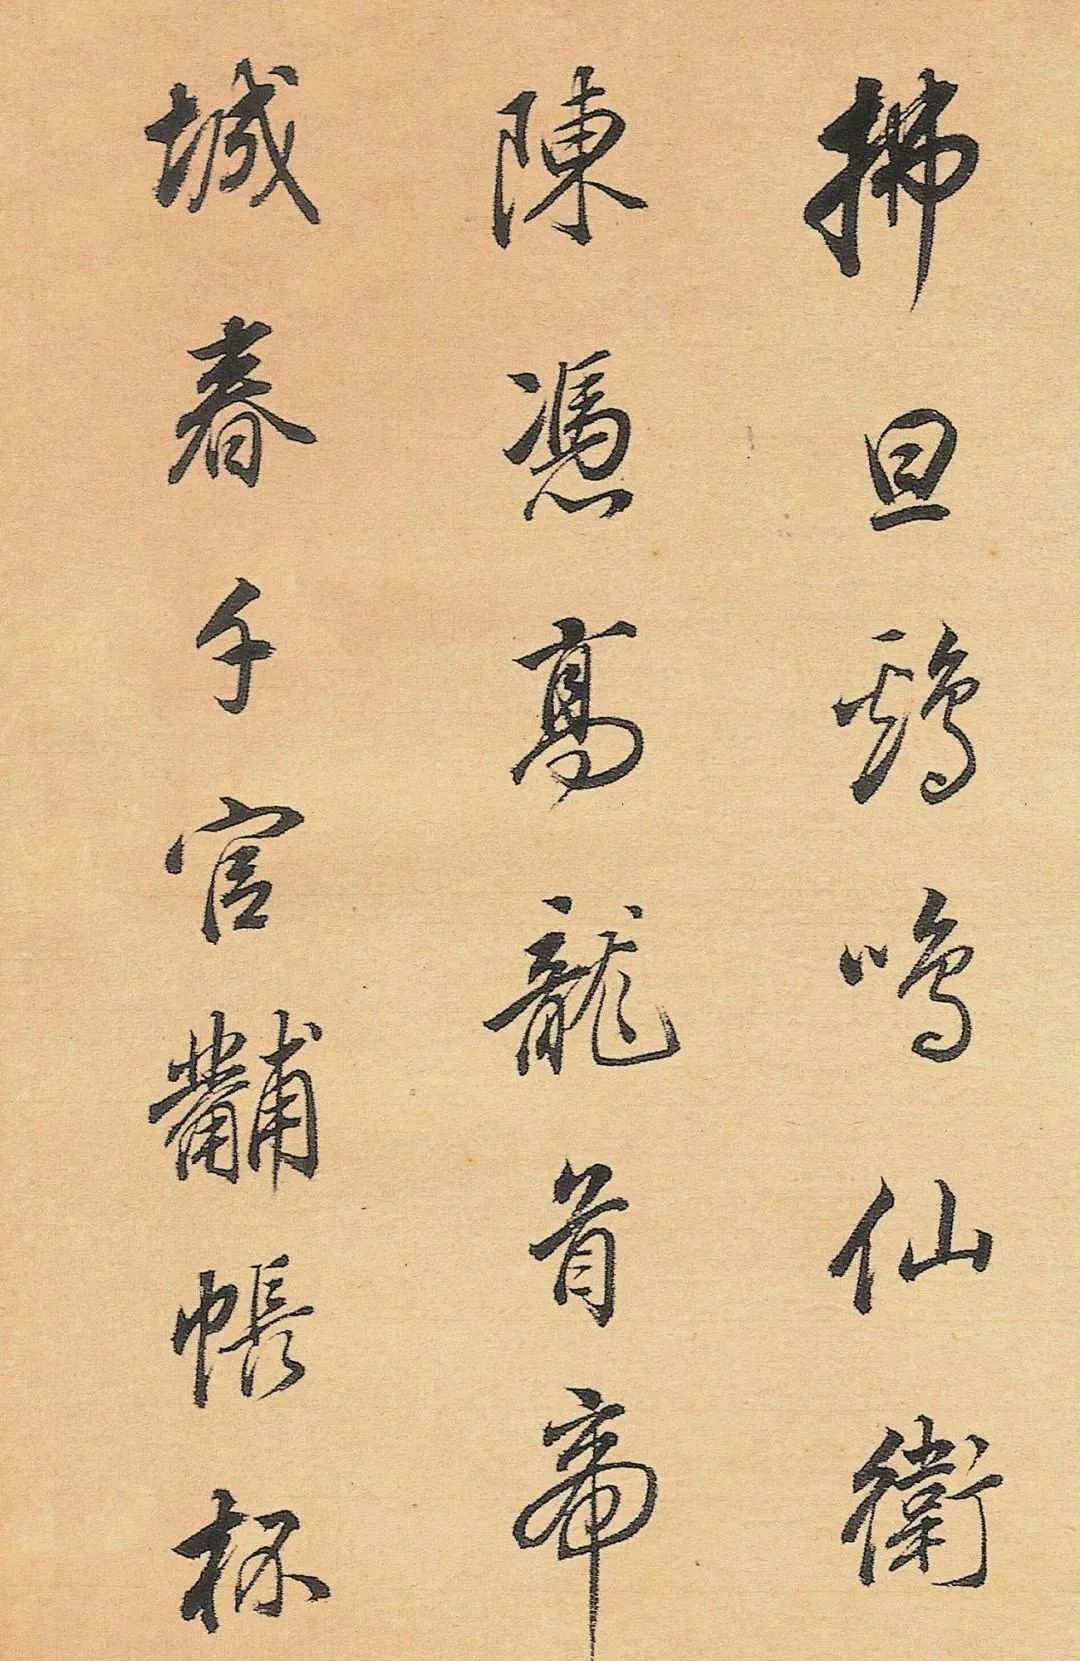 拂旦鷄鳴仙衛
陳憑高龍首帝
城春千官黼帳杯